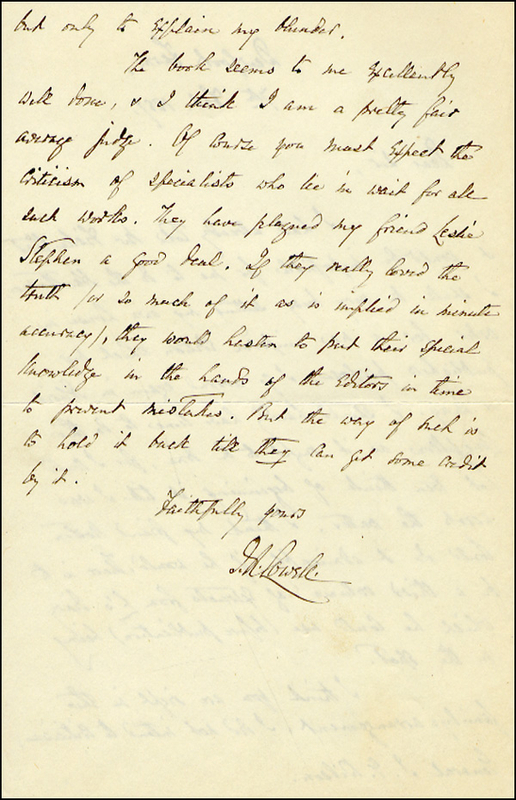 but only to explain my blunder.
The book seems to me excellently
well done, & I think I am a pretty fair
average judge. Of course you must expect the
criticism of specialists who lie in wait for all
such works. They have plagued my friend Leslie
Stephen a good deal. If they really loved the
truth (or so much of it as is implied in minute
accuracy), they would hasten to put their special
knowledge in the hands of the Editors in time
to prevent mistakes. But the way of such is
to hold it back till they can get some credit
by it.
Faithfully yours
J. R. Lowell.